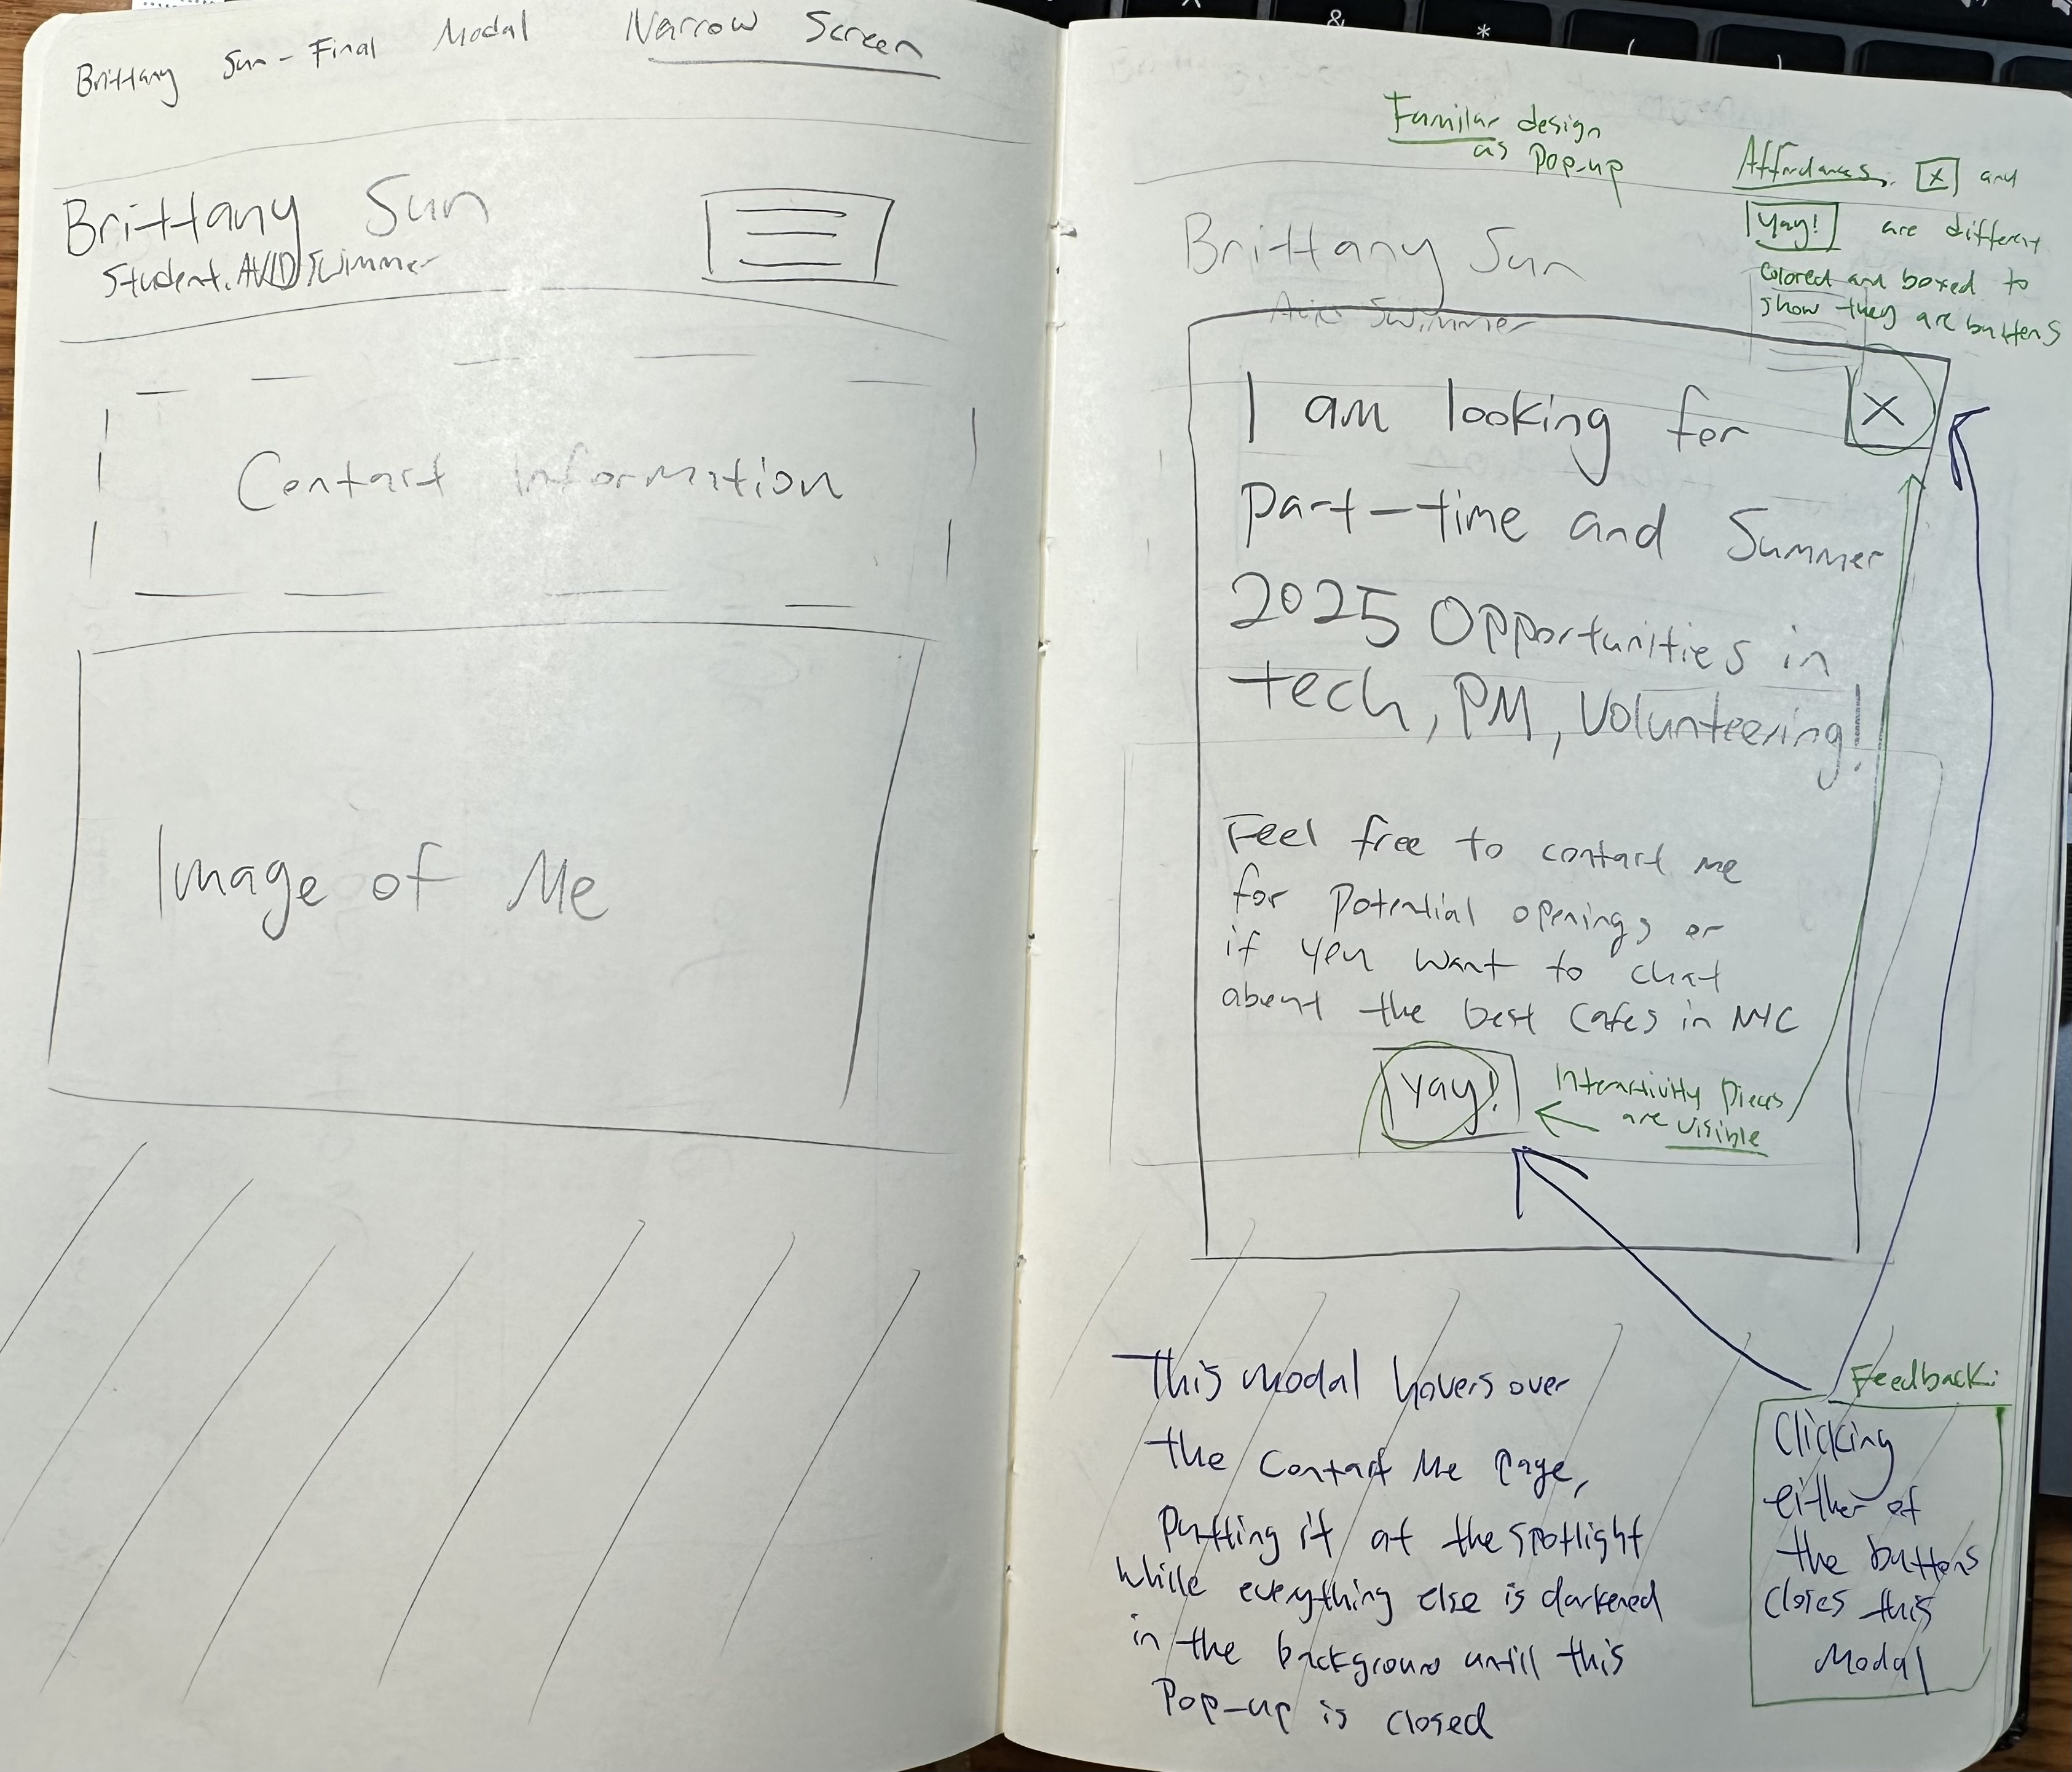 Brittany Sun - Final Modal Narrow Screen
Brittany Sun
Student, AVID Swimmer
Contact Information
Image of Me
Familar design
as Pop-up
Affordances: X and
Yay! are different
colored and boxed to
show they are buttons
Brittany Sun
Avid Swimmer
X
I am looking for
part-time and Summer
2025 Opportunities in
tech, PM, Volunteering!
Feel free to contact me
for Potential openings or
if you want to chat
about the best Cafes in NYC
Yay!
Interactivity Pieces
are visible
This modal hovers over
the Contact Me Page,
Putting it at the spotlight
While everything else is darkened
in the background untill this
Pop-up is closed
Feedback:
Clicking
either of
the buttons
closes this
Modal